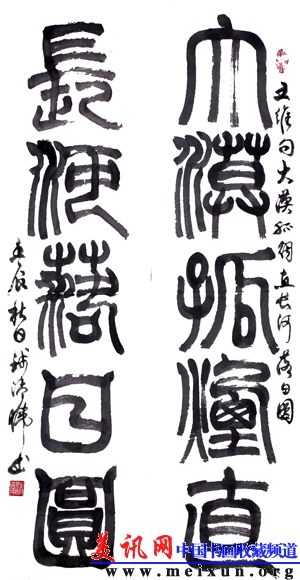 王维句大漠孤烟直长河落日圆
大漠孤煙直
長河落日圓
壬辰秋日
美讯网
中国书画收藏门户
www.meixun.org